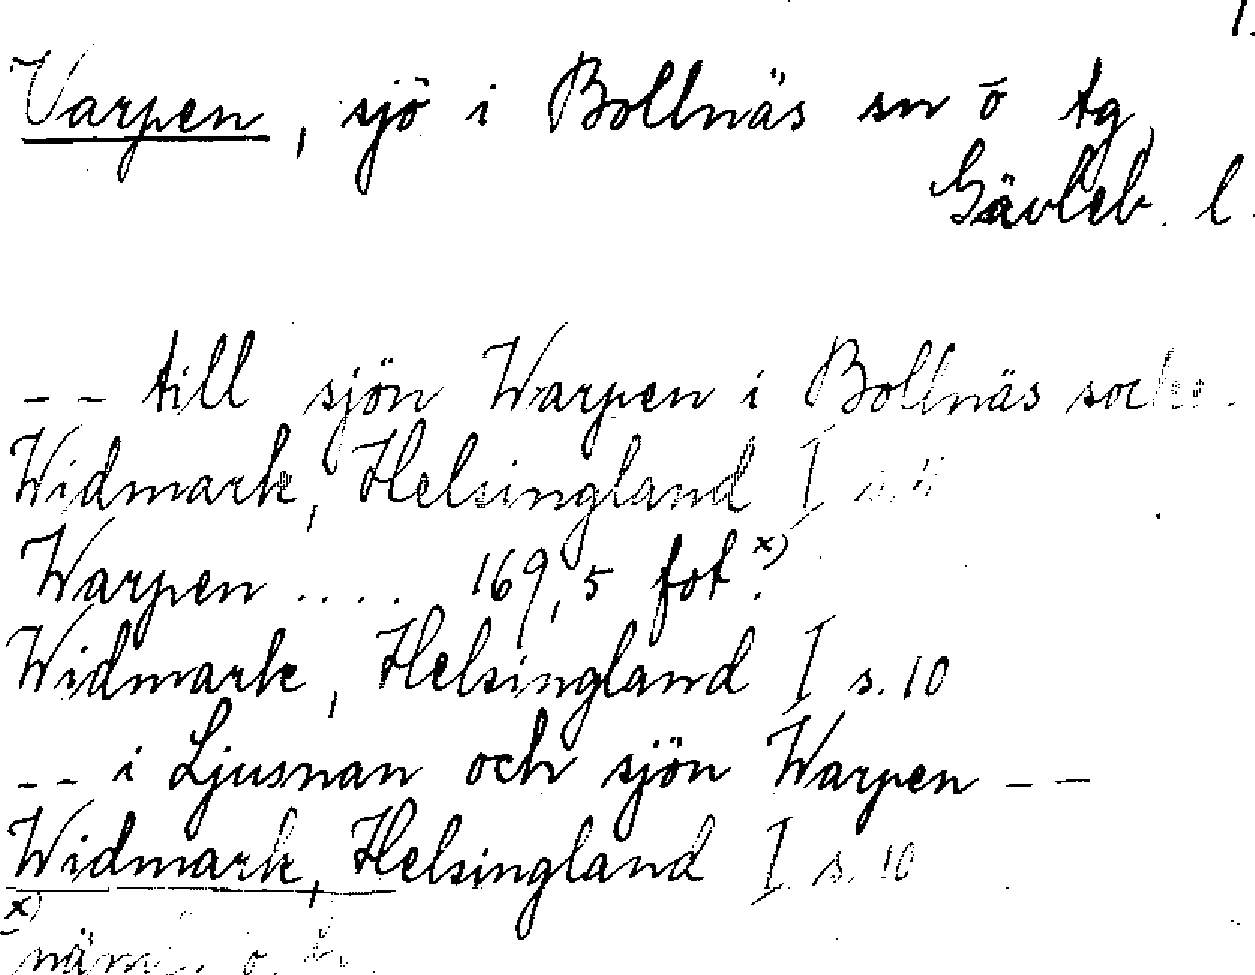 1.
Varpen, sjö i Bollnäs sn o tg,
Gävleb. l.
-- till sjön Warpen i Bollnäs socke
Widmark, Helsingland I s. 4
Warpen .... 169,5 fot x).
Widmark, Helsingland I s. 10
-- i Ljusnan och sjön Warpen --
Widmark, Helsingland I s. 10
x)